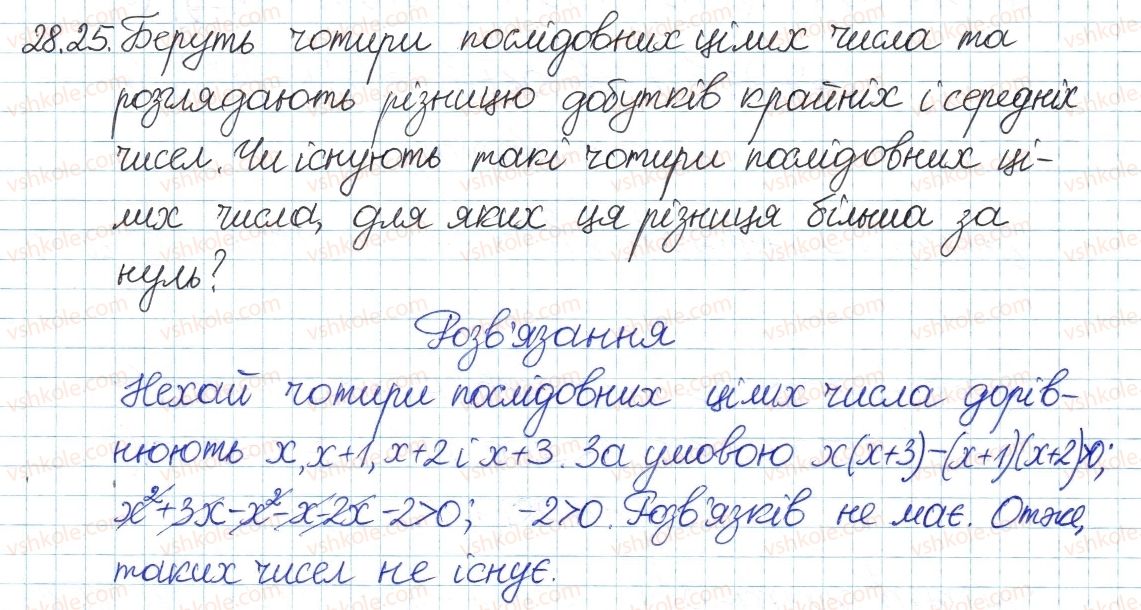 28.25. Беруть чотири послідовних цілих числа та
розглядають різницю добутків крайніх і середніх
чисел. Чи існують такі чотири послідовних ці-
лих числа, для яких ця різниця більша за
нуль?
Розв'язання
Нехай чотири послідовних цілих числа дорів-
нюють x, x+1, x+2 і x+3. За умовою x(x+3)-(x+1)(x+2)>0;
x²+3x-x²-x-2x-2>0; -2>0. Розв'язків не має. Отже,
таких чисел не існує.
vshkole.com